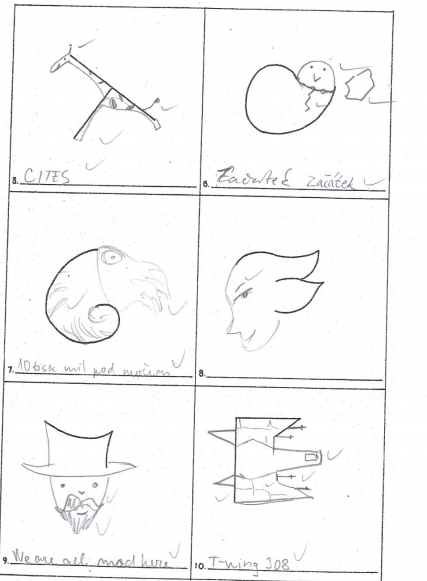 5. CITES
6. Začátek Začátek
7. 10 tisíc mil pod mořem
8.
9. We are all mad here
10. T-wing 308